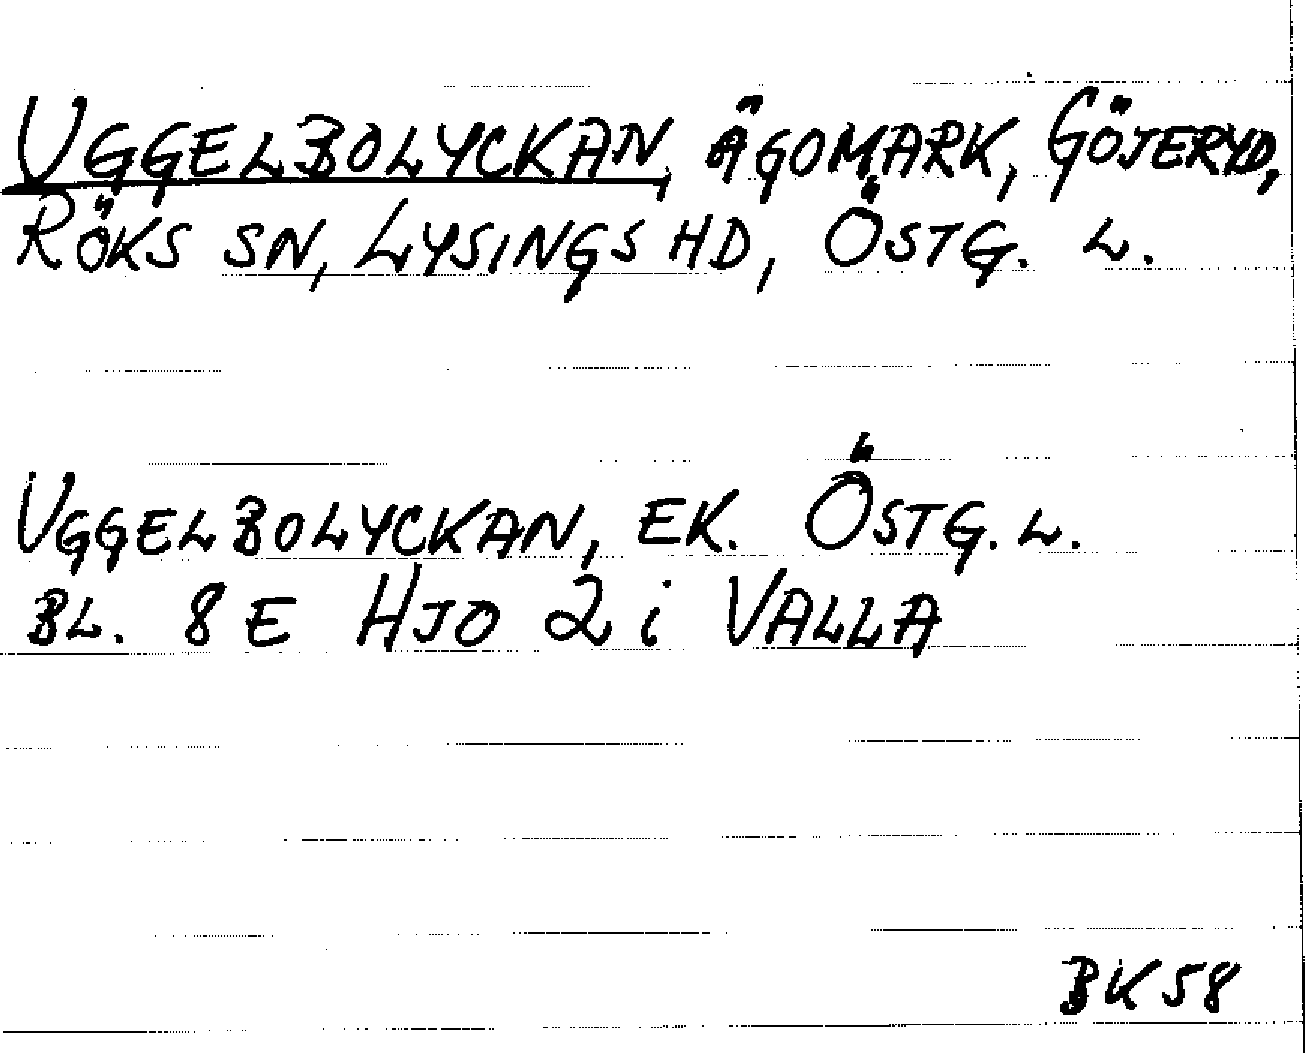 UGGELBOLYCKAN, ÄGOMARK, GÖJERYD,
RÖKS SN, LYSINGS HD, ÖSTG. L.
UGGELBOLYCKAN, EK. ÖSTG. L.
BL. 8 E HJO 2 i VALLA
BK 58